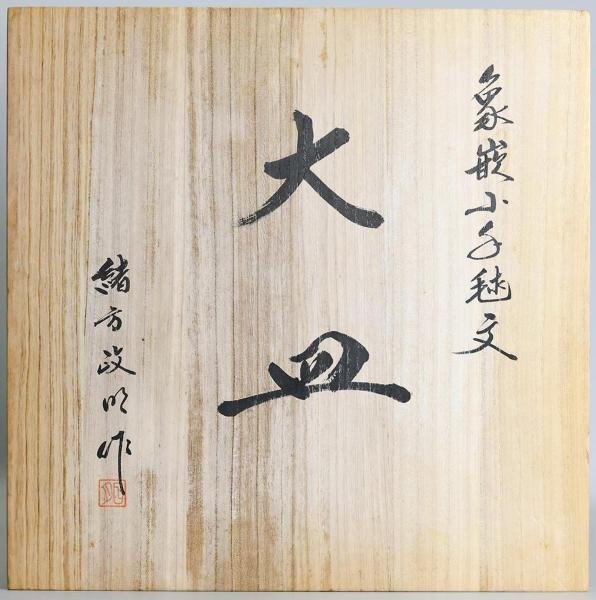 象嵌小手毬文
大皿
緒方政明作